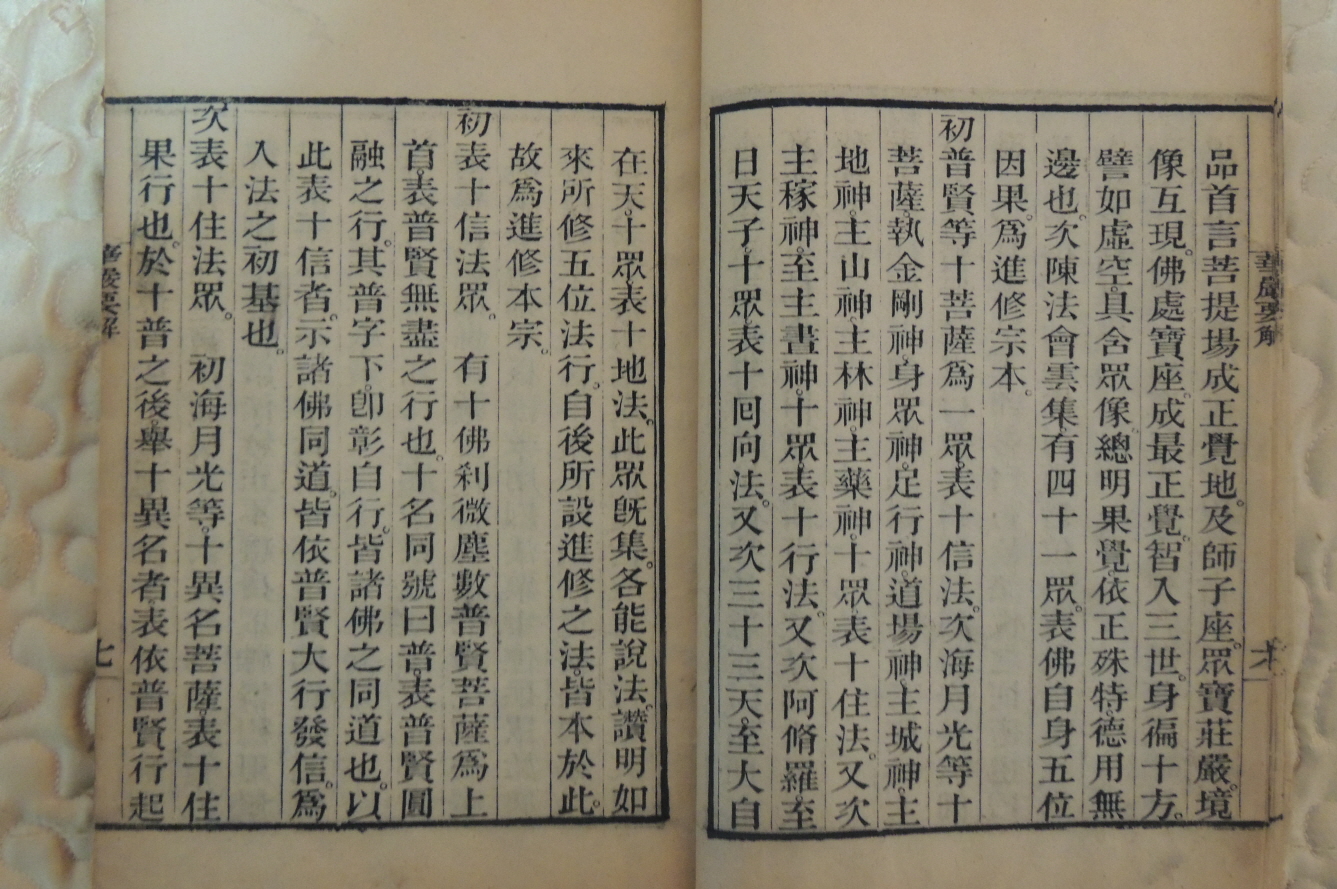 華嚴要解
六
品首言菩提場成正覺地。及師子座。眾寶莊嚴。境
像互現。佛處寶座。成最正覺。智入三世。身徧十方。
譬如虛空。具含眾像。總明果覺。依正殊特。德用無
邊也。次陳法會雲集。有四十一眾。表佛自身五位
因果。為進修宗本。
初普賢等十菩薩為一眾。表十信法。次海月光等十
菩薩。執金剛神。身眾神。足行神。道場神。主城神。主
地神。主山神。主林神。主藥神。十眾。表十住法。又次
主稼神。至主晝神。十眾。表十行法。又次阿脩羅。至
日天子。十眾。表十回向法。又次三十三天。至大自
在天。十眾。表十地法。此眾旣集。各能說法。讚明如
來所修五位法行。自後所設進修之法。皆本於此。
故為進修本宗。
初表十信法眾。　有十佛剎微塵數普賢菩薩為上
首。表普賢無盡之行也。十名同號曰普。表普賢圓
融之行。其普字下。卽彰自行。皆諸佛之同道也。以
此表十信者。示諸佛同道。皆依普賢大行發信。為
入法之初基也。
次表十住法眾。　初海月光等。十異名菩薩。表十住
果行也。於十普之後。舉十異名者。表依普賢行起
華嚴要解
七